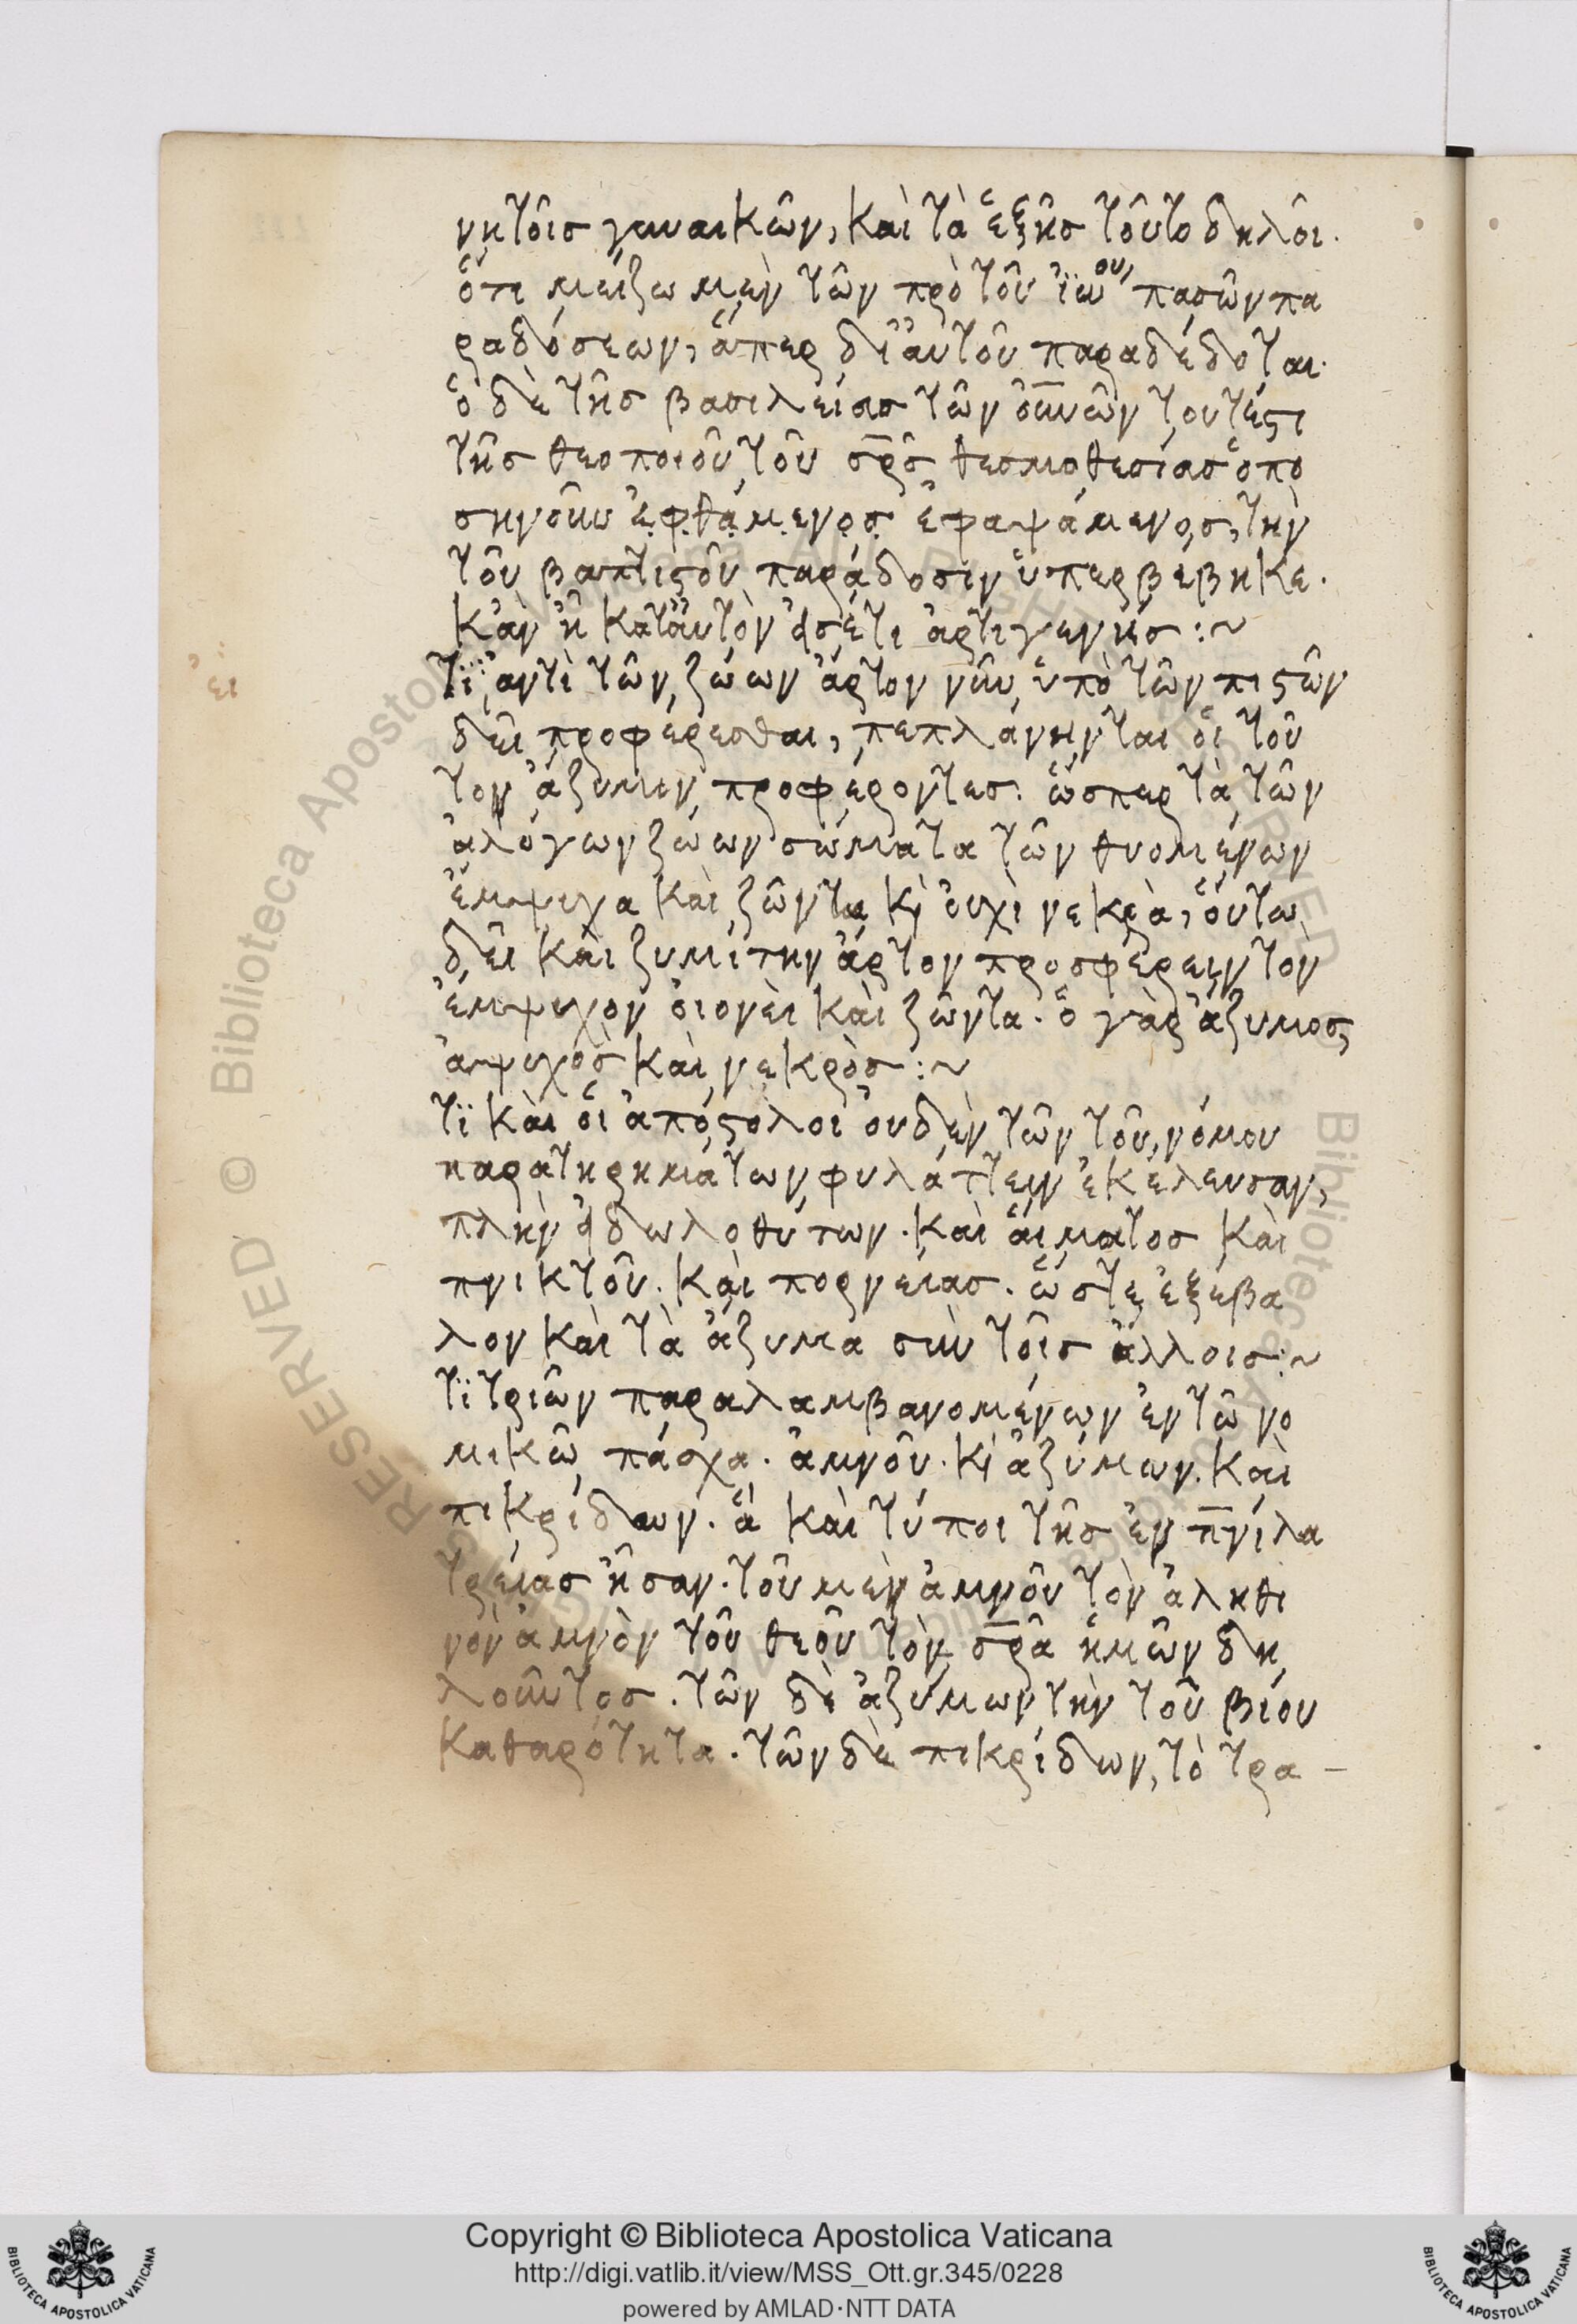 νητοῖς γυναικῶν, καὶ τὰ ἑξῆς τοῦτο δηλοῖ.
ὅτι μείζω μὲν τῶν πρὸ τοῦ ἰω^ου πασῶν πα
ραδόσεων, ἅπερ δι' αὐτοῦ παραδέδοται.
ὁ δὲ τῆς βασιλείας τῶν οὐνῶν τουτέστι
τῆς θεοποιοῦ τοῦ σρς θεσμοθεσίας ὁπο
σηνοῦν ἐφθάμενος ἐφαψάμενος, τὴν
τοῦ βαπτιστοῦ παράδοσιν ὑπερβέβηκε.
κἂν ἢ κατ' αὐτὸν εἰσέτι ἀρτιγενής :~
ιε
Τί ἀντὶ τῶν ζώων ἄρτον νῦν ὑπὸ τῶν πιστῶν
δεῖ προφέρεσθαι, πεπλάνηνται οἱ τοῦ
τον ἄζυμεν προφέροντες. ὥσπερ τὰ τῶν
ἀλόγων ζώων σώματα τῶν θυομένων
ἔμψυχα καὶ ζῶντα κὶ οὐχὶ νεκρὰ, οὕτω
δεῖ καὶ ζυμίτην ἄρτον προσφέρειν τὸν
ἔμψυχον οἱονεὶ καὶ ζῶντα. ὁ γὰρ ἄζυμος
ἄψυχος καὶ νεκρὸς :~
Τί καὶ οἱ ἀπόστολοι οὐδὲν τῶν τοῦ νόμου
παρατηρημάτων φυλάττειν ἐκέλευσαν,
πλὴν εἰδωλοθύτων. καὶ αἵματος καὶ
πνικτοῦ. καὶ πορνείας. ὥστε ἐξέβα
λον καὶ τὰ ἄζυμα σὺν τοῖς ἄλλοις :~
Τί τριῶν παραλαμβανομένων ἐν τῶ νο
μικῶ πάσχα. ἀμνοῦ. κὶ ἀζύμων. καὶ
πικρίδων. ἃ καὶ τύποι τῆς ἐν πνι λα
τρείας ἦσαν. τοῦ μὲν ἀμνοῦ τὸν ἀληθι
νὸν ἀμνὸν τοῦ θεοῦ τὸν σρα ἡμῶν δη
λοῦντος. τῶν δὲ ἀζύμων τὴν τοῦ βίου
καθαρότητα. τῶν δὲ πικρίδων, τὸ τρα -
Copyright © Biblioteca Apostolica Vaticana
http://digi.vatlib.it/view/MSS_Ott.gr.345/0228
powered by AMLAD·NTT DATA